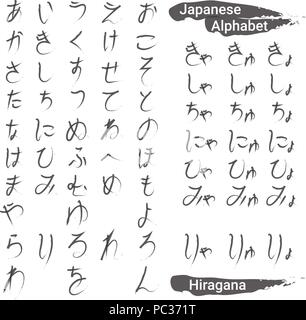 Japanese
Alphabet
あ い う え お
か き く け こ
さ し す せ そ
た ち つ て と
な に ぬ ね の
は ひ ふ へ ほ
ま み む め も
や ゆ よ
ら り る れ ろ
わ を ん
きゃ きゅ きょ
しゃ しゅ しょ
ちゃ ちゅ ちょ
にゃ にゅ にょ
ひゃ ひゅ ひょ
みゃ みゅ みょ
りゃ りゅ りょ
Hiragana
PC371T